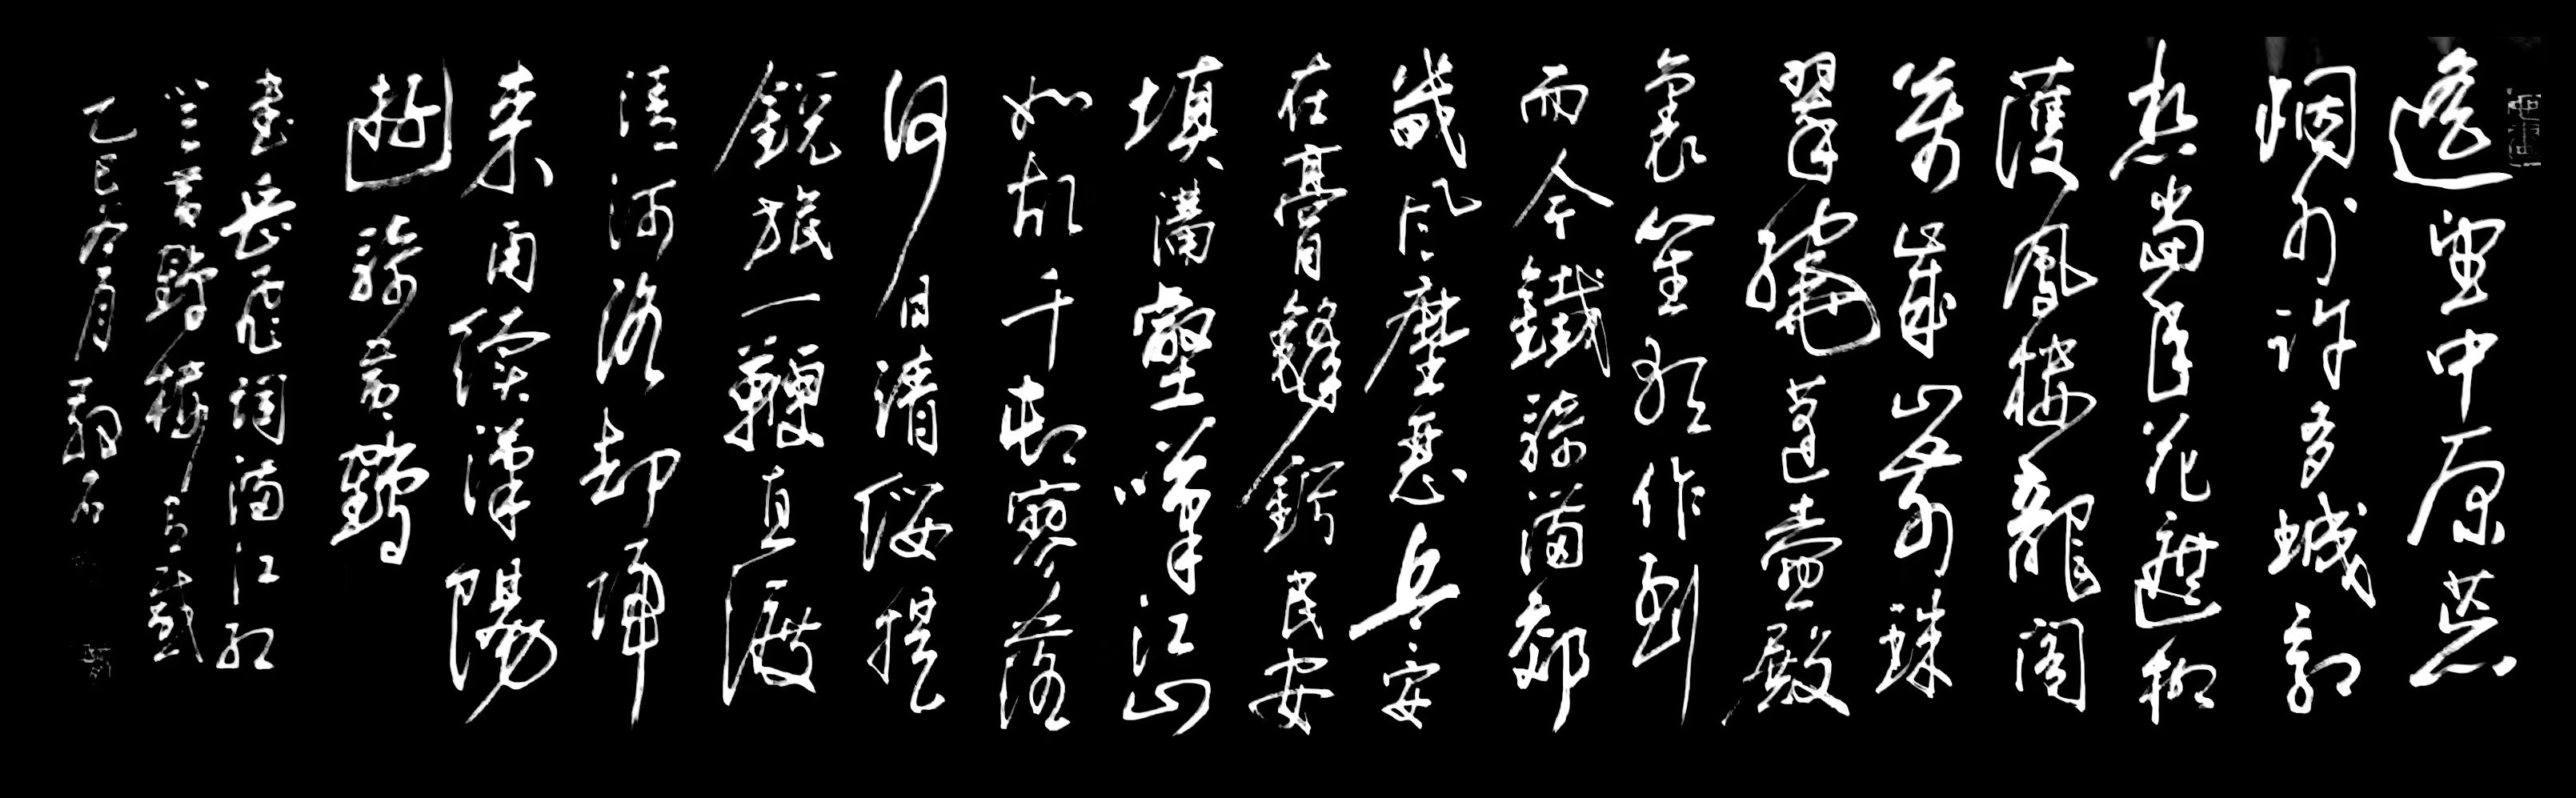 遙望中原荒
烟外許多城郭
想當年花遮柳
護鳳樓龍閣
萬歲山前珠
翠繞蓬壺殿
裏笙歌作到
而今鐵騎滿郊
畿風塵惡兵安
在膏鋒鍔民安
填溝壑嘆江山
如故千邨寥落
何日請纓提
銳旅一鞭直渡
清河洛却歸
來再續漢陽
遊騎黃鶴
書岳飛詞滿江紅
登黃鶴樓有感
乙巳冬月